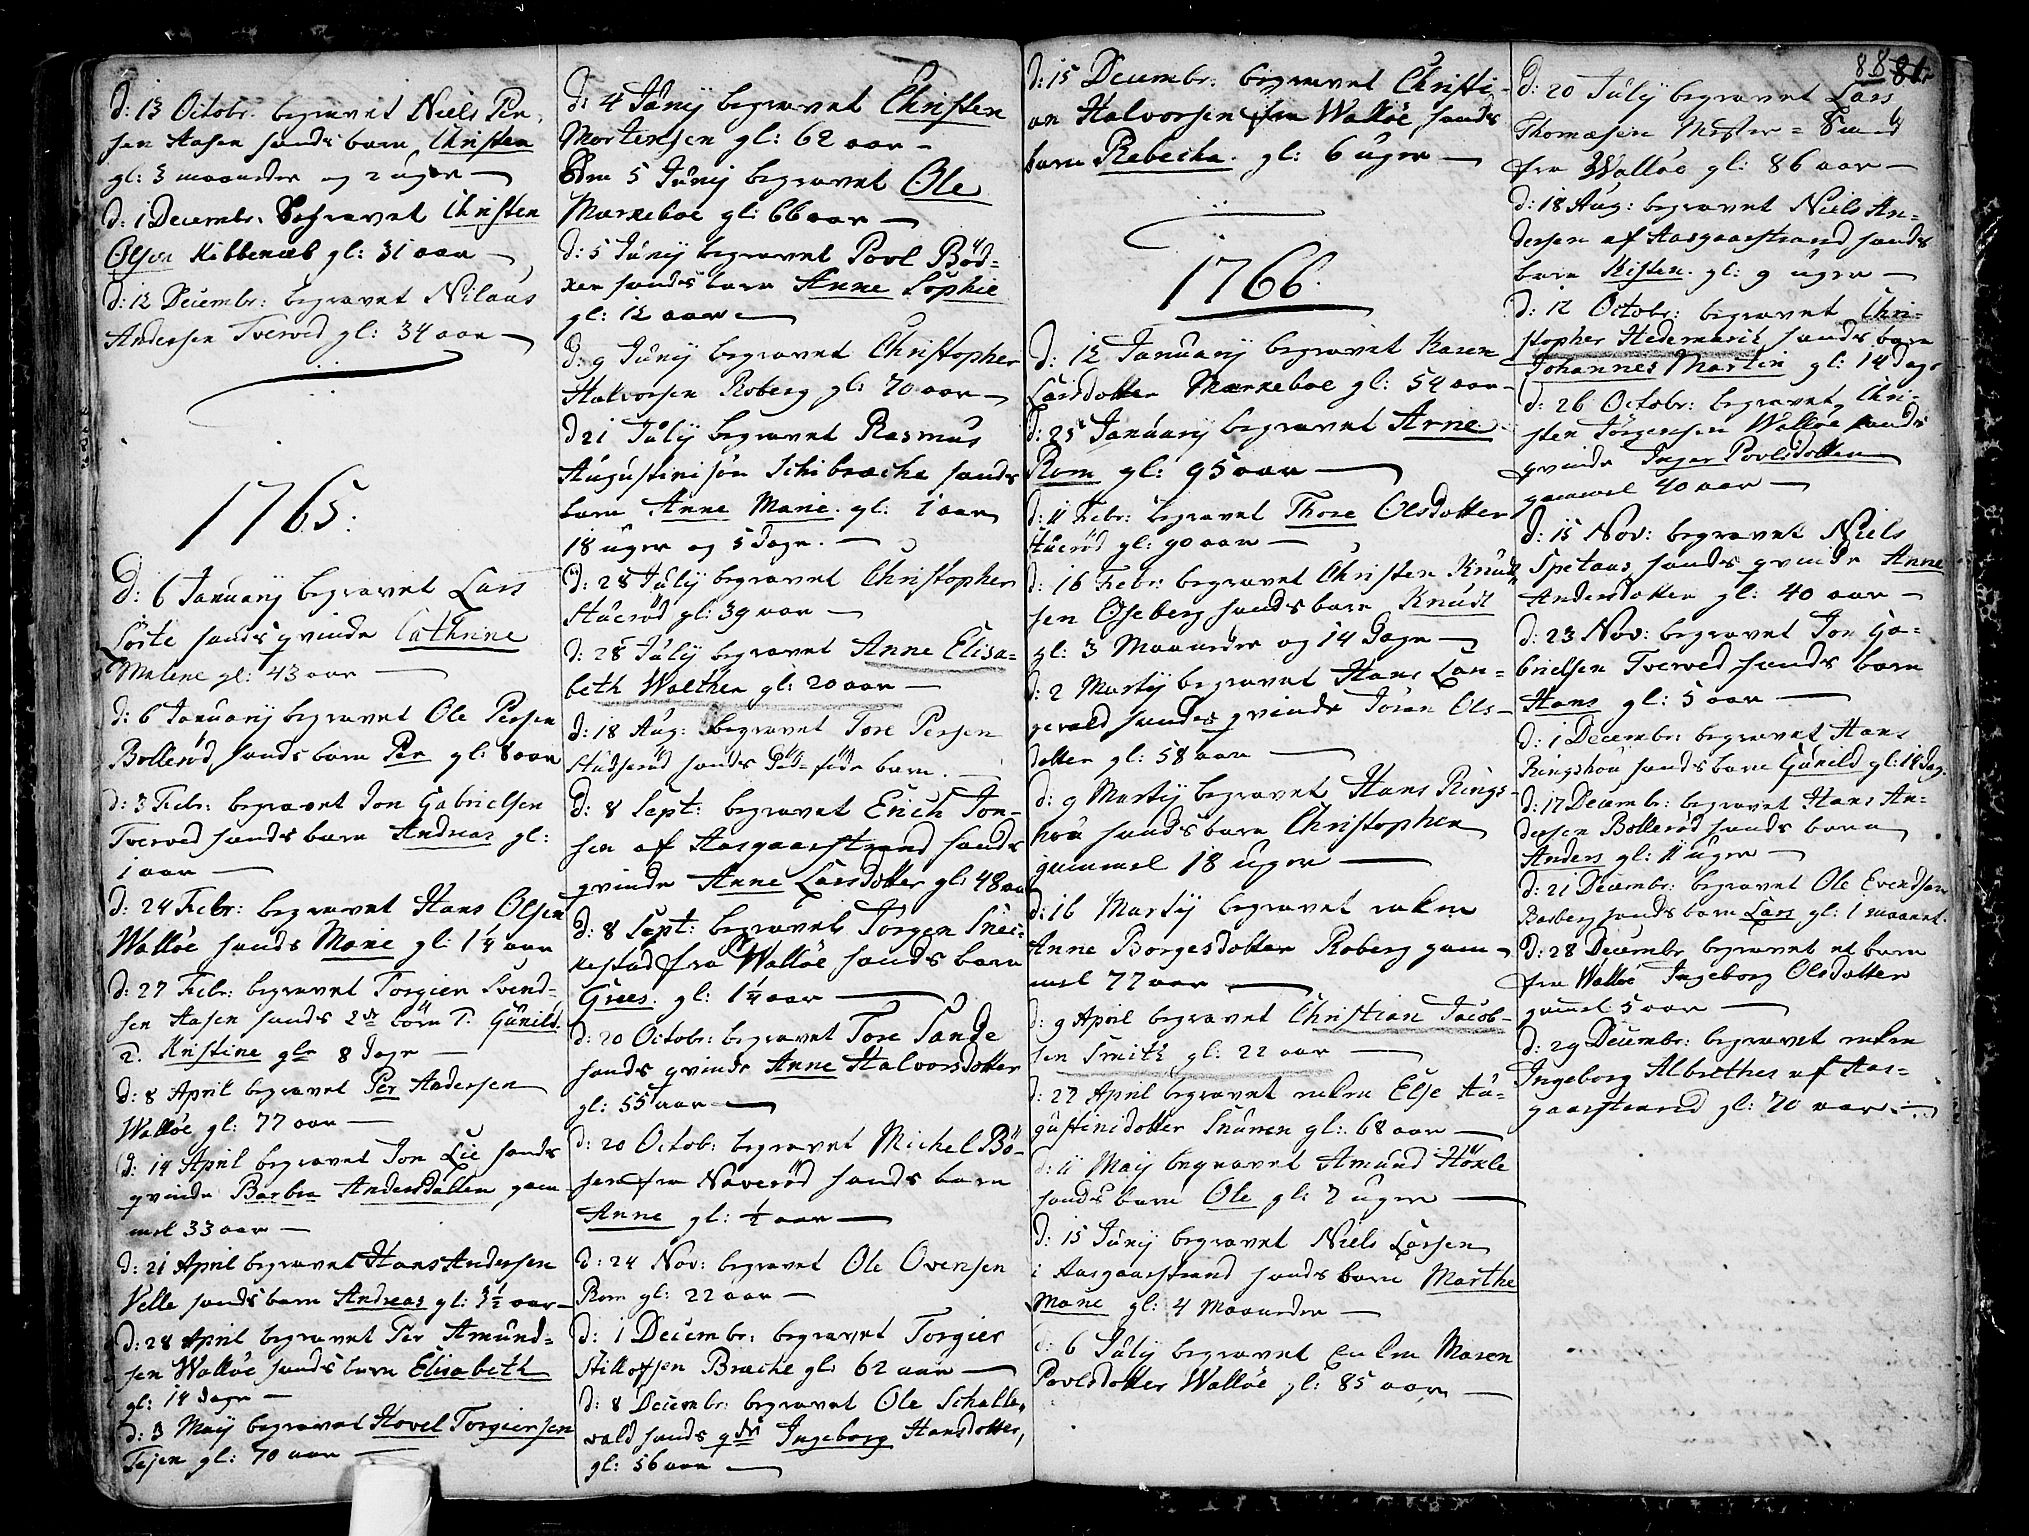 d: 13 Octobr: begravet Niels Per,
sen Aasen hands barn Christen
gl: 3 maaneder og 2 uger —
d: 1 Decembr: Begravet Christen
Olsen Kibbenæb gl: 31 aar —
d: 12 Decembr: begravet Nilaus
Andersen Tverved gl: 34 aar —
1765:
d: 6 Januarij begravet Lars
Lofte hands qvinde Cathrine
Malene gl: 43 aar —
d: 6 Januarij begravet Ole Persen
Bollerød hands barn Per gl: 8 aar
d: 3 Febr: begravet Jon Gabrielsen
Tverved hands barn Andreas gl:
1 aar —
d: 24 Febr: begravet Hans Olsen
Walløe hands Marie gl: 1¼ aar
d: 27 Febr: begravet Torgier Svend=
sen Aasen hands 2de børn 1. Gunild
2. Kristine gle 8 dage —
d: 8 April begravet Per Andersen
Walløe gl: 77 aar —
d: 14 April begravet Jon Lie hands
qvinde Barbra Andersdatter gam
mel 33 aar —
d: 21 April begravet Hans Andersen
Velle hands barn Andreas gl: 3½ aar —
d: 28 April begravet Per Amund=
sen Walløe hands barn Elisabeth
gl: 14 dage —
d: 3 Maij begravet Hovel Torgiersen
Tejen gl: 70 aar —
d: 4 Junij begravet Christen
Mortensen gl: 62 aar —
Den 5 Junij begravet Ole
Mærkeboe gl: 66 aar —
d: 5 Junij begravet Povl Bød=
ker hands barn Anne Sophie
gl: 12 aar —
d: 9 Junij begravet Christopher
Halvorsen Roberg gl: 70 aar —
d 21 Julij begravet Rasmus
Augustinisøn Schibræche hands
barn Anne Marie. gl: 1 aar
18 uger og 5 dage. —
d: 28 Julij begravet Christopher
Stuerød gl: 39 aar —
d: 28 Julij begravet Anne Elisa=
beth Walther gl: 20 aar —
d: 18 Aug: begravet Tore Persen
Stulserød hands død-fød barn. —
d: 8 Sept: begravet Erich Jon-
sen af Aasgaarstrand hands
qvinde Anne Larsdotter gl: 48 aar
d: 8 Sept: begravet Jørgen Snei-
kestad fra Walløe hands barn
Grees. gl: 1¼ aar —
d: 20 Octobr: begravet Tore Sande
hands qvinde Anne Halvorsdotter
gl: 55 aar —
d: 20 Octob: begravet Michel Bø-
sen fra Naverød hands barn
Anne gl: ½ aar —
d: 24 Nov: begravet Ole Ovensen
Rom gl: 22 aar —
d: 1 Decembr: begravet Torgier
Stillofsen Bræche gl: 62 aar —
d: 8 Decembr: begravet Ole Schalle,
vald hands qde Ingeborg Hansdotter,
gl: 56 aar —
d: 15 Decembr: begravet Christi-
an Halvorsen fra Walløe hands
barn Rebecka. gl: 6 uger —
1766.
d: 12 Januarij begravet Karen
Larsdotter Mærkeboe gl: 54 aar —
d: 25 Januarij begravet Arne
Rom gl: 95 aar —
d: 11 Febr: begravet Thore Olsdotter
Stuerød gl: 90 aar —
d: 16 Febr: begravet Christen Knud
sen Oseberg hands barn Knud
gl: 3 Maaneder og 14 dage —
d: 2 Martij begravet Hans Lan=
gevald hands qvinde Joran Ols-
dotter gl: 58 aar —
d: 9 Martij begravet Hans Rings-
hou hands barn Christopher
gammel 18 uger —
d: 16 Martij begravet enken
Anne Borgesdotter Roberg gam
mel 77 aar —
d: 9 April begravet Christian Jacob-
sen Smith gl: 22 aar —
d: 27 April begravet enken Else Au=
gustinidotter Snuren gl: 68 aar —
d: 11 Maij begravet Amund Høxle
hands barn Ole gl: 2 uger —
d: 15 Junij begravet Niels Larsen
i Aasgaarstrand hands barn Marthe
Marie gl: 4 Maaneder —
d: 6 Julij begravet Enken Maren
Povlsdotter Walløe gl: 85 aar —
88 81.
d: 20 Julij begravet Lars
Thomæsen Mester=Svend
fra Walløe gl: 86 aar —
d: 18 Aug: begravet Niels An=
dersen af Aasgaarstrand hands
barn Kisten. gl: 9 uger —
d: 12 Octobr: begravet Chri=
stopher Hedemarck hands barn
Johannes Martin gl: 14 dage
d: 26 Octobr: begravet Chri-
sten Jørgensen Walløe hands
qvinde Inger Povlsdotter
gammel 40 aar —
d: 15 Nov: begravet Niels
Spetaas hands qvinde Anne
Andersdotter gl: 40 aar —
d: 23 Nov: begravet Jon Ga-
brielsen Tverved hands barn
Hans gl: 5 aar —
d: 1 Decembr: begravet Hans
Ringshou hands barn Gunild gl: 18 dag.
d: 17 Decembr: begravet Hans An=
dersen Bollerød hands barn
Anders gl: 11 uger —
d: 21 Decembr: begravet Ole Evendsen
Barberg hands barn Lars gl: 1 maanet.
d: 28 Decembr begravet et barn
fra Walløe Ingeborg Olsdotter
gammel 5 aar —
d: 29 Decembr: begravet enken
Ingeborg Albrethes af Aas=
gaarstrand gl: 70 aar —